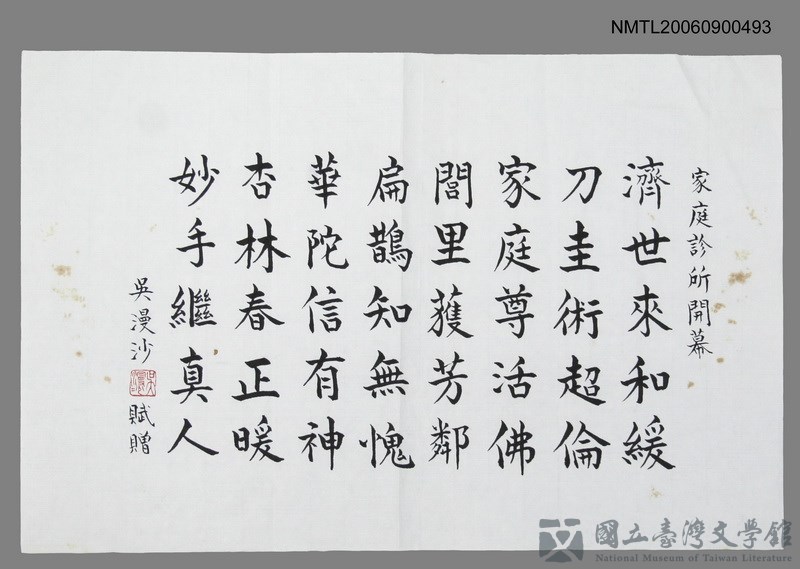 NMTL20060900493
家庭診所開幕
濟世來和緩
刀圭術超倫
家庭尊活佛
閭里獲芳鄰
扁鵲知無愧
華陀信有神
杏林春正暖
妙手繼真人
吳漫沙
賦贈
國立臺灣文學館
National Museum of Taiwan Literature